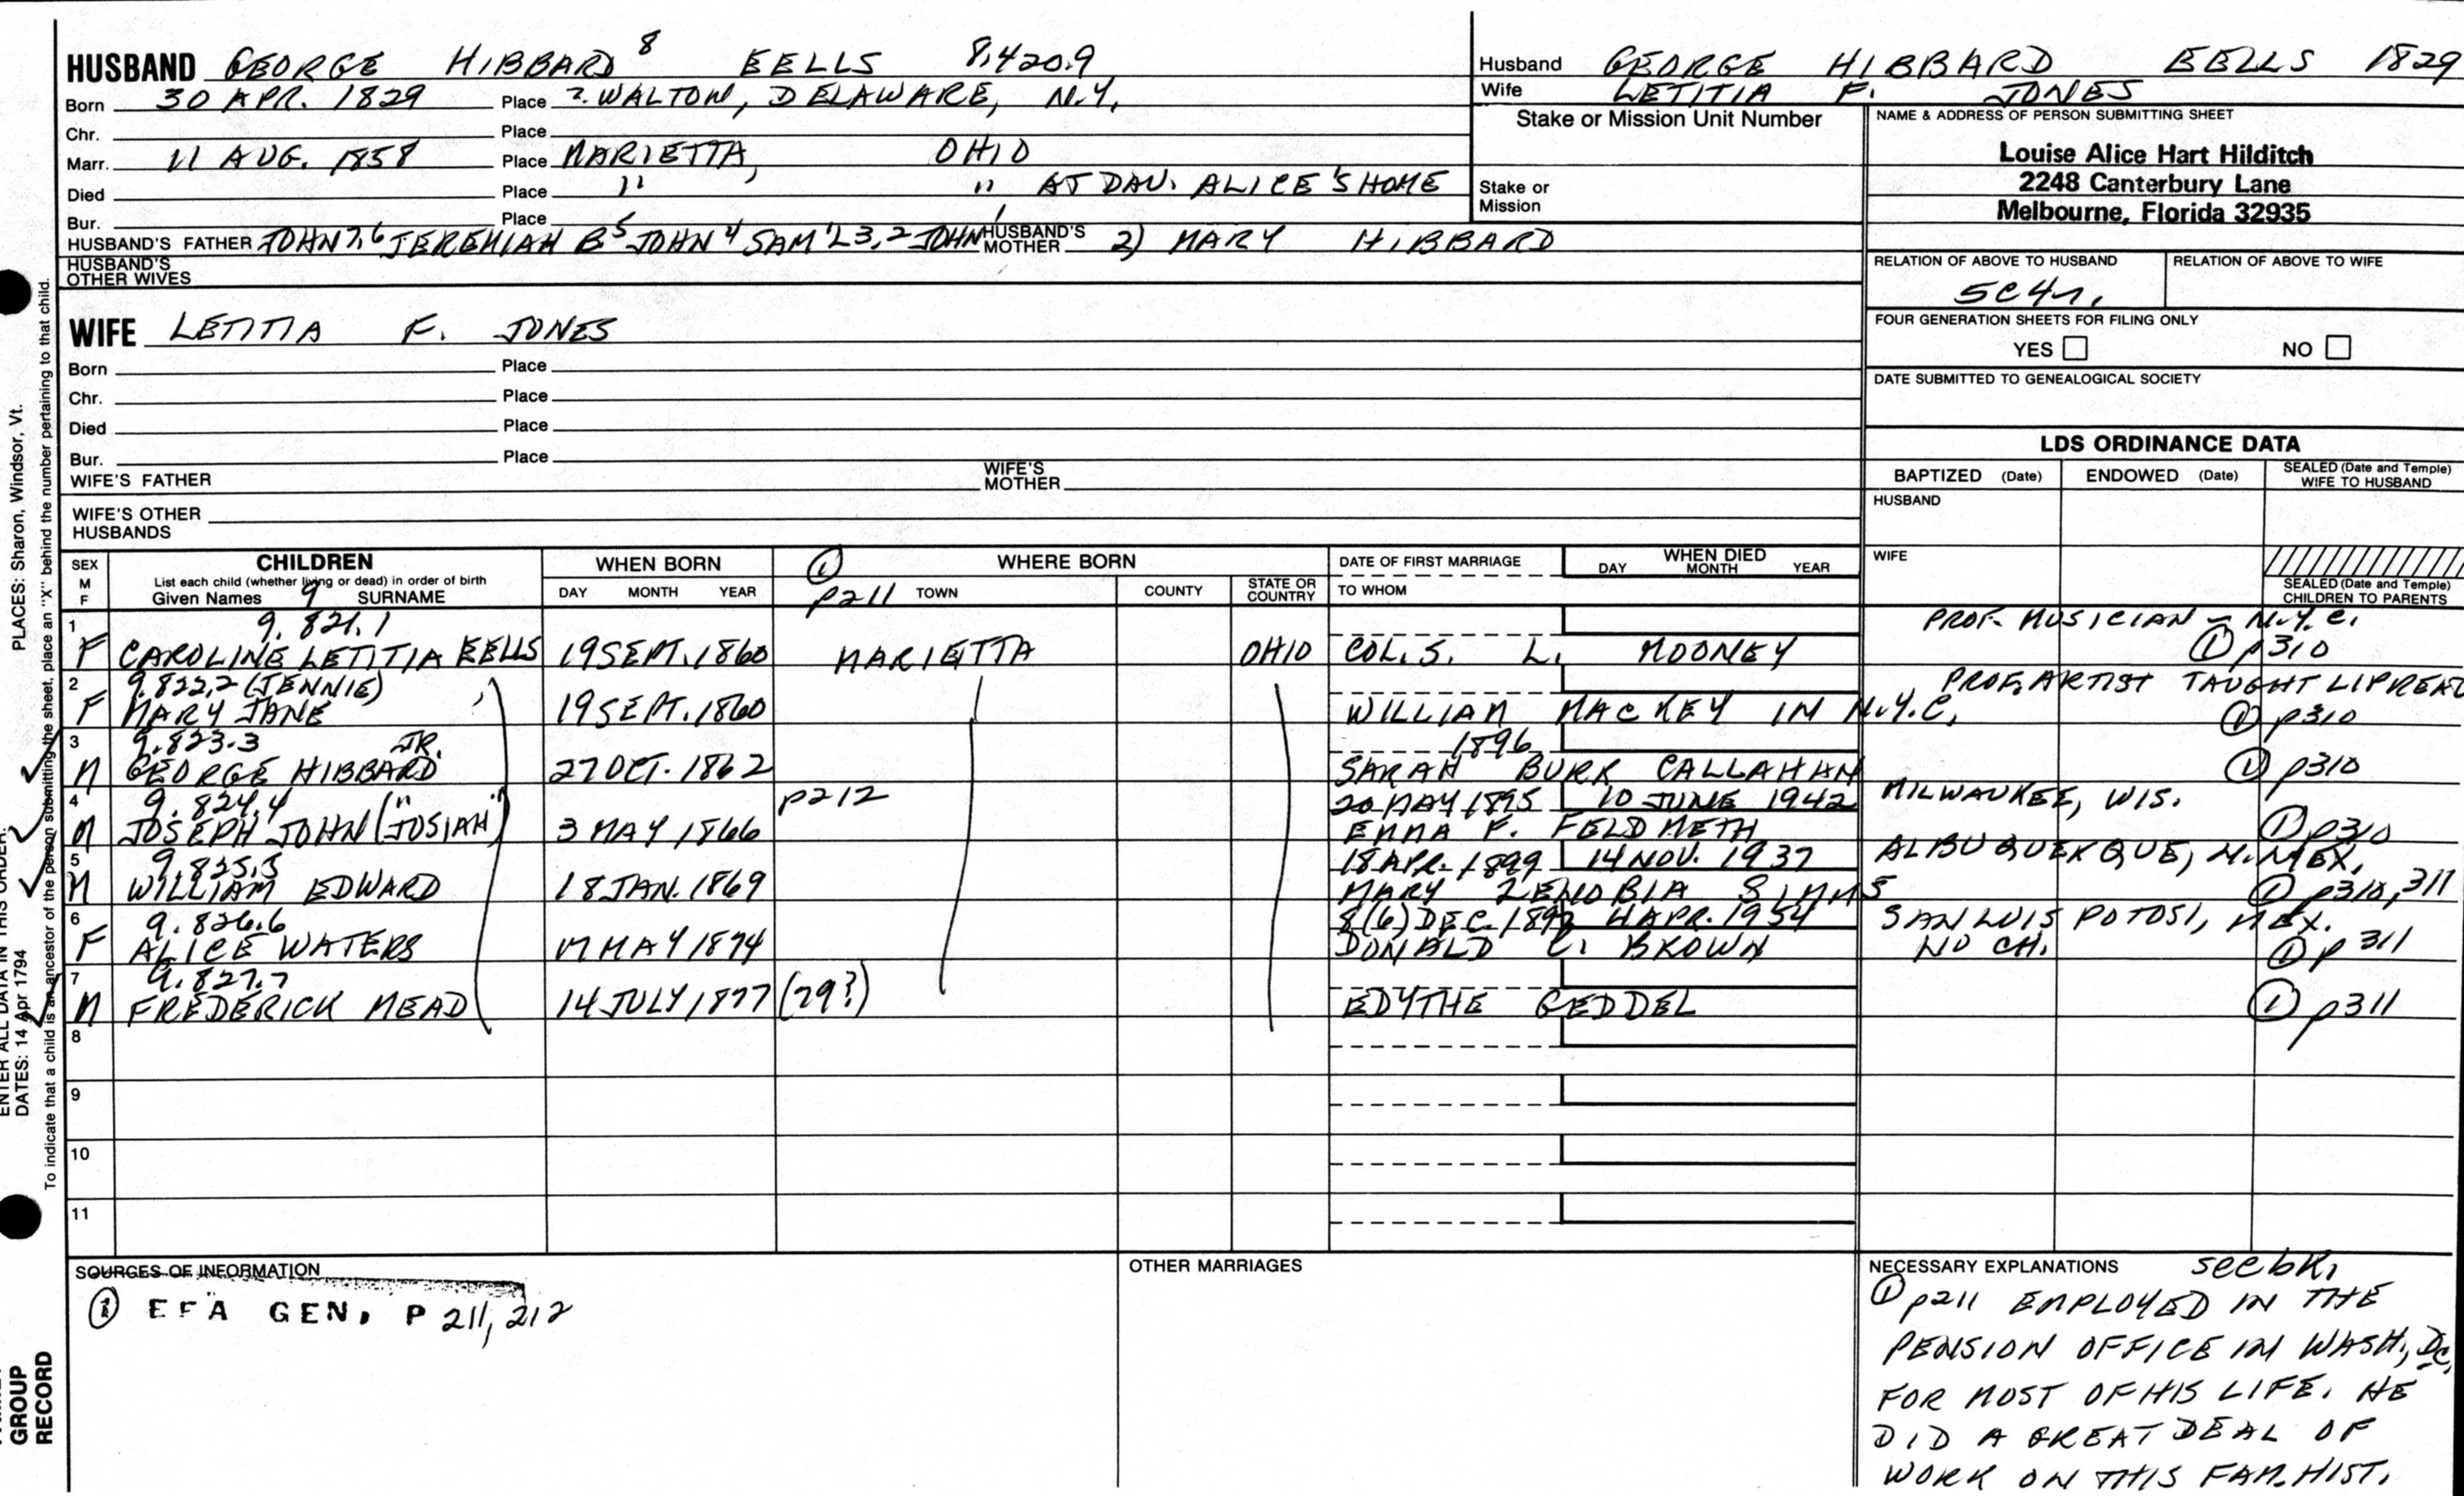 HUSBAND GEORGE HIBBARD 8 EELLS 8,420.9
Born 30 APR. 1829 Place ?. WALTON, DELAWARE, N.Y.
Chr. Place
Marr. 11 AUG. 1858 Place MARIETTA, OHIO
Died Place " " AT DAU. ALICE'S HOME
Bur. Place
HUSBAND'S FATHER JOHN 7,6 JEREMIAH B 5 JOHN 4 SAM'L 3,2 JOHN 1 HUSBAND'S MOTHER 2) MARY HIBBARD
HUSBAND'S OTHER WIVES
Husband GEORGE HIBBARD EELLS 1829
Wife LETITIA F. JONES
Stake or Mission Unit Number
Stake or Mission
NAME & ADDRESS OF PERSON SUBMITTING SHEET
Louise Alice Hart Hilditch
2248 Canterbury Lane
Melbourne, Florida 32935
RELATION OF ABOVE TO HUSBAND RELATION OF ABOVE TO WIFE
5C4r.
FOUR GENERATION SHEETS FOR FILING ONLY
YES NO
DATE SUBMITTED TO GENEALOGICAL SOCIETY
WIFE LETITIA F. JONES
Born Place
Chr. Place
Died Place
Bur. Place
WIFE'S FATHER WIFE'S MOTHER
WIFE'S OTHER HUSBANDS
LDS ORDINANCE DATA
BAPTIZED (Date) ENDOWED (Date) SEALED (Date and Temple) WIFE TO HUSBAND
HUSBAND
WIFE
SEALED (Date and Temple) CHILDREN TO PARENTS
SEX M F CHILDREN WHEN BORN ① WHERE BORN DATE OF FIRST MARRIAGE WHEN DIED
List each child (whether living or dead) in order of birth
Given Names 9 SURNAME DAY MONTH YEAR p211 TOWN COUNTY STATE OR COUNTRY TO WHOM DAY MONTH YEAR
1 9.821.1 PROF. MUSICIAN - N.Y.C.
F CAROLINE LETITIA EELLS 19 SEPT. 1860 MARIETTA OHIO COL. S. L. MOONEY ① p310
2 9.822.2 (JENNIE) PROF. ARTIST TAUGHT LIPREAD
F MARY JANE 19 SEPT. 1860 WILLIAM MACKEY IN N.Y.C. ① p310
3 9.823.3 JR. 1896
M GEORGE HIBBARD 27 OCT. 1862 SARAH BURK CALLAHAN ① p310
4 9.824.4 p212 20 MAY 1895 10 JUNE 1942 MILWAUKEE, WIS.
M JOSEPH JOHN ("JOSIAH") 3 MAY 1866 EMMA F. FELDMETH ① p310
5 9.825.5 18 APR. 1899 14 NOV. 1937 ALBUQUERQUE, N. MEX.
M WILLIAM EDWARD 18 JAN. 1869 MARY ZENOBIA SIMMS ① p310, 311
6 9.826.6 8(6) DEC. 4 APR. 1954 SAN LUIS POTOSI, MEX.
F ALICE WATERS 17 MAY 1874 DONALD C. BROWN NO CH. ① p311
7 9.827.7
M FREDERICK MEAD 14 JULY 1877 (29?) EDYTHE GEDDEL ① p311
8
9
10
11
SOURCES OF INFORMATION
① EFA GEN, P 211, 212
OTHER MARRIAGES
NECESSARY EXPLANATIONS see bk.
① p211 EMPLOYED IN THE
PENSION OFFICE IN WASH., DC,
FOR MOST OF HIS LIFE. HE
DID A GREAT DEAL OF
WORK ON THIS FAM. HIST.
PLACES: Sharon, Windsor, Vt.
ENTER ALL DATA IN THIS ORDER:
DATES: 14 Apr 1794
To indicate that a child is an ancestor of the person submitting the sheet, place an "X" behind the number pertaining to that child.
GROUP
RECORD